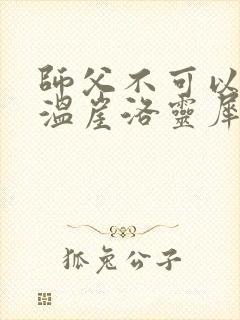 師父不可以
溫崖洛靈犀
狐兔公子